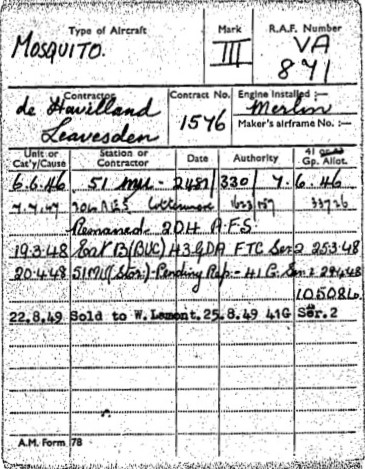 Type of Aircraft
Mark
R.A.F. Number
MOSQUITO.
III
VA
871
Contractor
Contract No.
Engine Installed :—
de Havilland
Leavesden
1576
Merlin
Maker's airframe No. :—
Unit or Cat'y/Cause
Station or Contractor
Date
Authority
41 Gp. Allot.
6.6.46 51 MU. 2481 330 7.6.46
7.7.47 204 AFS Cottesmore
Renamed 204 A.F.S.
19.3.48 Cat B(BUC) 43 GDA FTC Ser 2 25.3.48
20.4.48 51MU (Stor.) Pending Rep. 41 G. Ser 2
22.8.49 Sold to W. Lamont. 25.8.49 41G Ser.2
A.M. Form 78